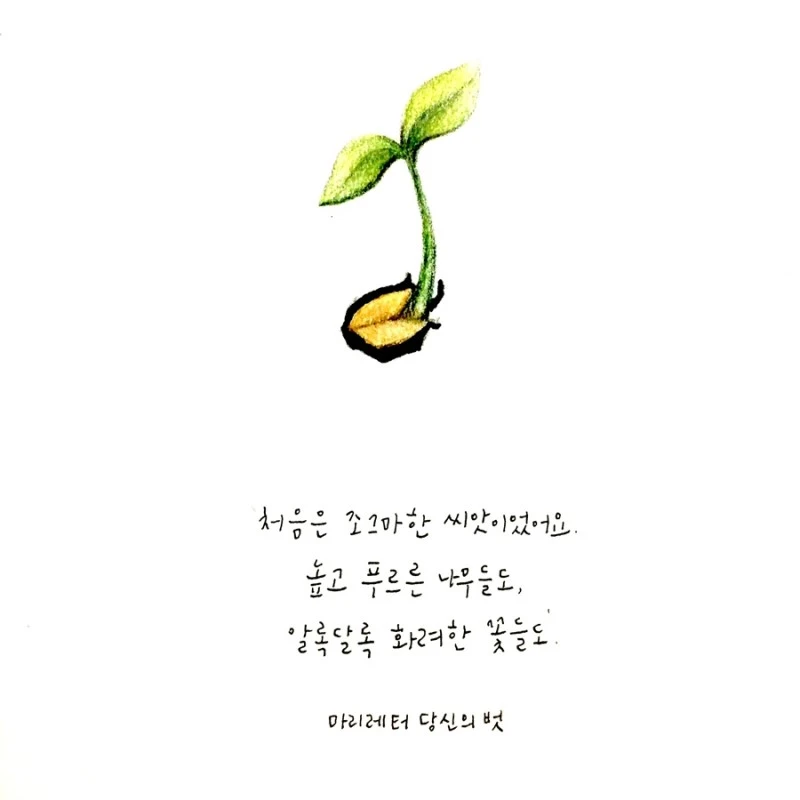 처음은 조그마한 씨앗이었어요.
높고 푸르른 나무들도,
알록달록 화려한 꽃들도.
마리레터 당신의 벗